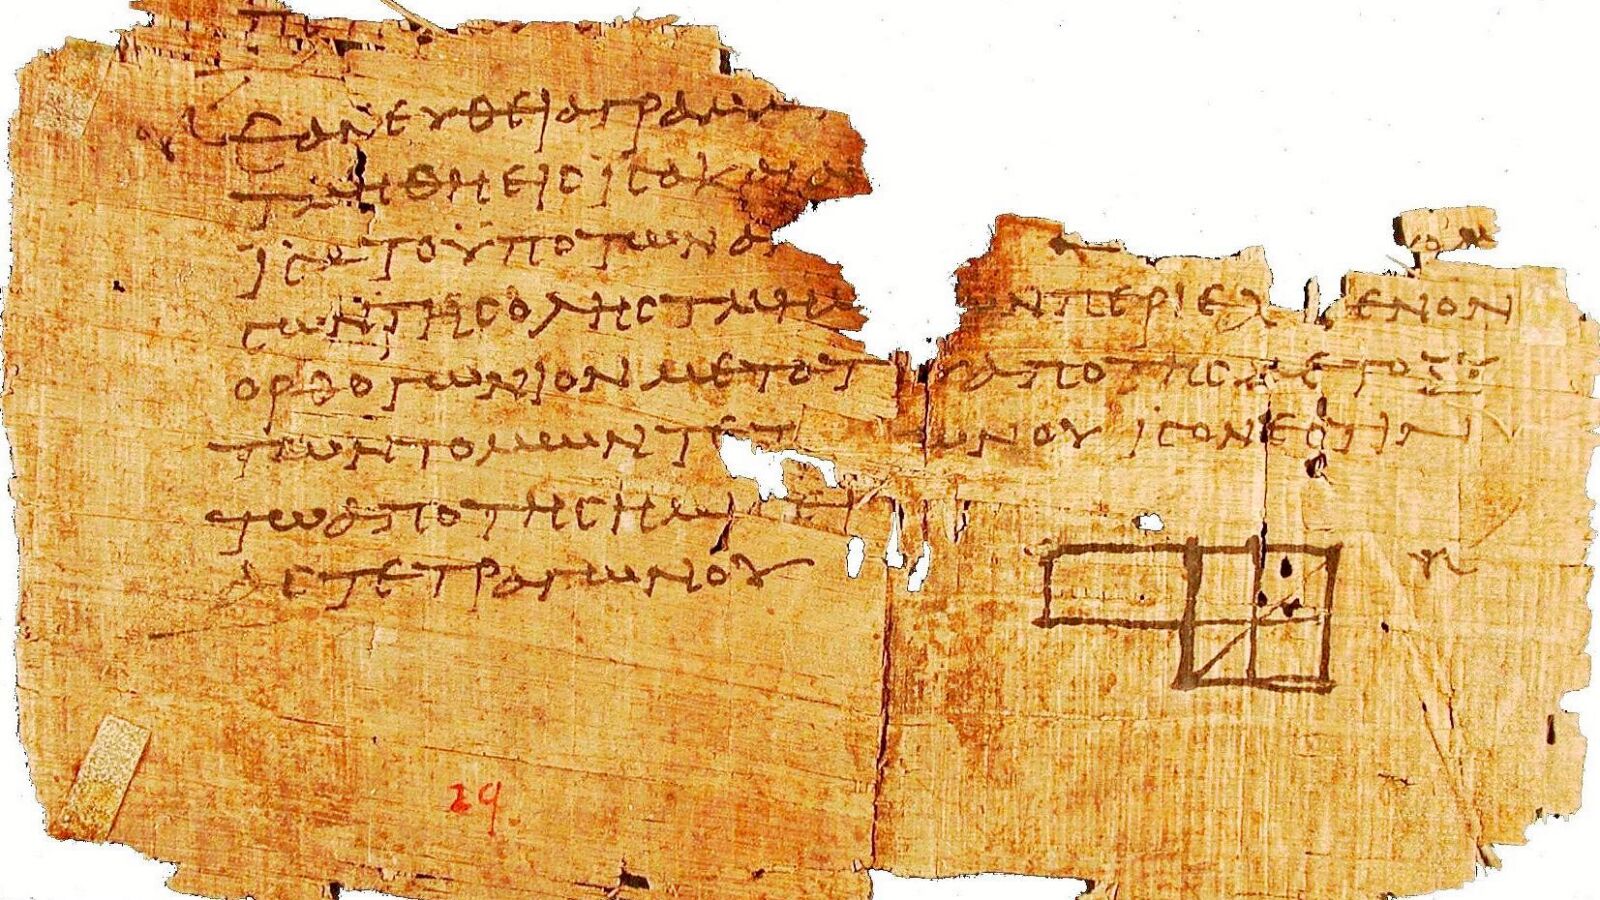 ΕΑΝ ΕΥΘΕΙΑ ΓΡΑΜΜ
ΤΜΗΘΗ ΕΙϹ ΙϹΑ ΚΑΙ ΑΝ
ΙϹΑ ΤΟ ΥΠΟ ΤΩΝ ΑΝ
ϹΩΝ ΤΗϹ ΟΛΗϹ ΤΜΗΜ ΩΝ ΠΕΡΙΕΧ ΕΝΟΝ
ΟΡΘΟΓΩΝΙΟΝ ΜΕΤΑ ΤΟ ΑΠΟ ΤΗϹ ΜΕΤΟΞΥ
ΤΩΝ ΤΟΜΩΝ ΤΕΤ ΩΝΟΥ ΙϹΟΝ ΕϹΤΙΝ
ΤΩ ΑΠΟ ΤΗϹ ΗΜΙϹΕΙ
ΑϹ ΤΕΤΡΑΓΩΝΟΥ
29